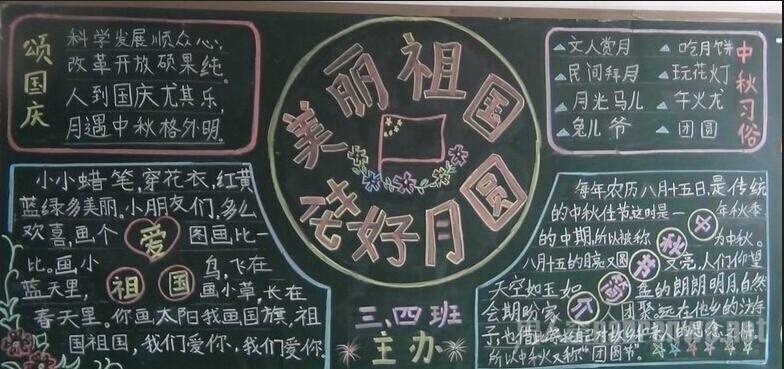 颂国庆
科学发展顺众心,
改革开放硕果纯。
人到国庆尤其乐,
月遇中秋格外明。
美丽祖国
花好月圆
文人赏月
吃月饼
民间拜月
玩花灯
月光马儿
午火龙
兔儿爷
团圆
中秋习俗
小小蜡笔,穿花衣,红黄
蓝绿多美丽。小朋友们,多么
欢喜,画个爱图画比一
比。画小鸟,飞在
祖国
蓝天里,画小草,长在
春天里。你画太阳我画国旗,祖
国祖国,我们爱你,我们爱你。
三、四班
主办
每年农历八月十五日,是传统
的中秋佳节。这时是一年秋季
的中期,所以被称为中秋。
中秋节简介
八月十五的月亮又圆又亮,人们仰望
天空如玉如盘的朗朗明月,自然
会期盼家人团聚。远在他乡的游
子,也借此寄托
的思念之情。
所以中秋又称"团圆节"。